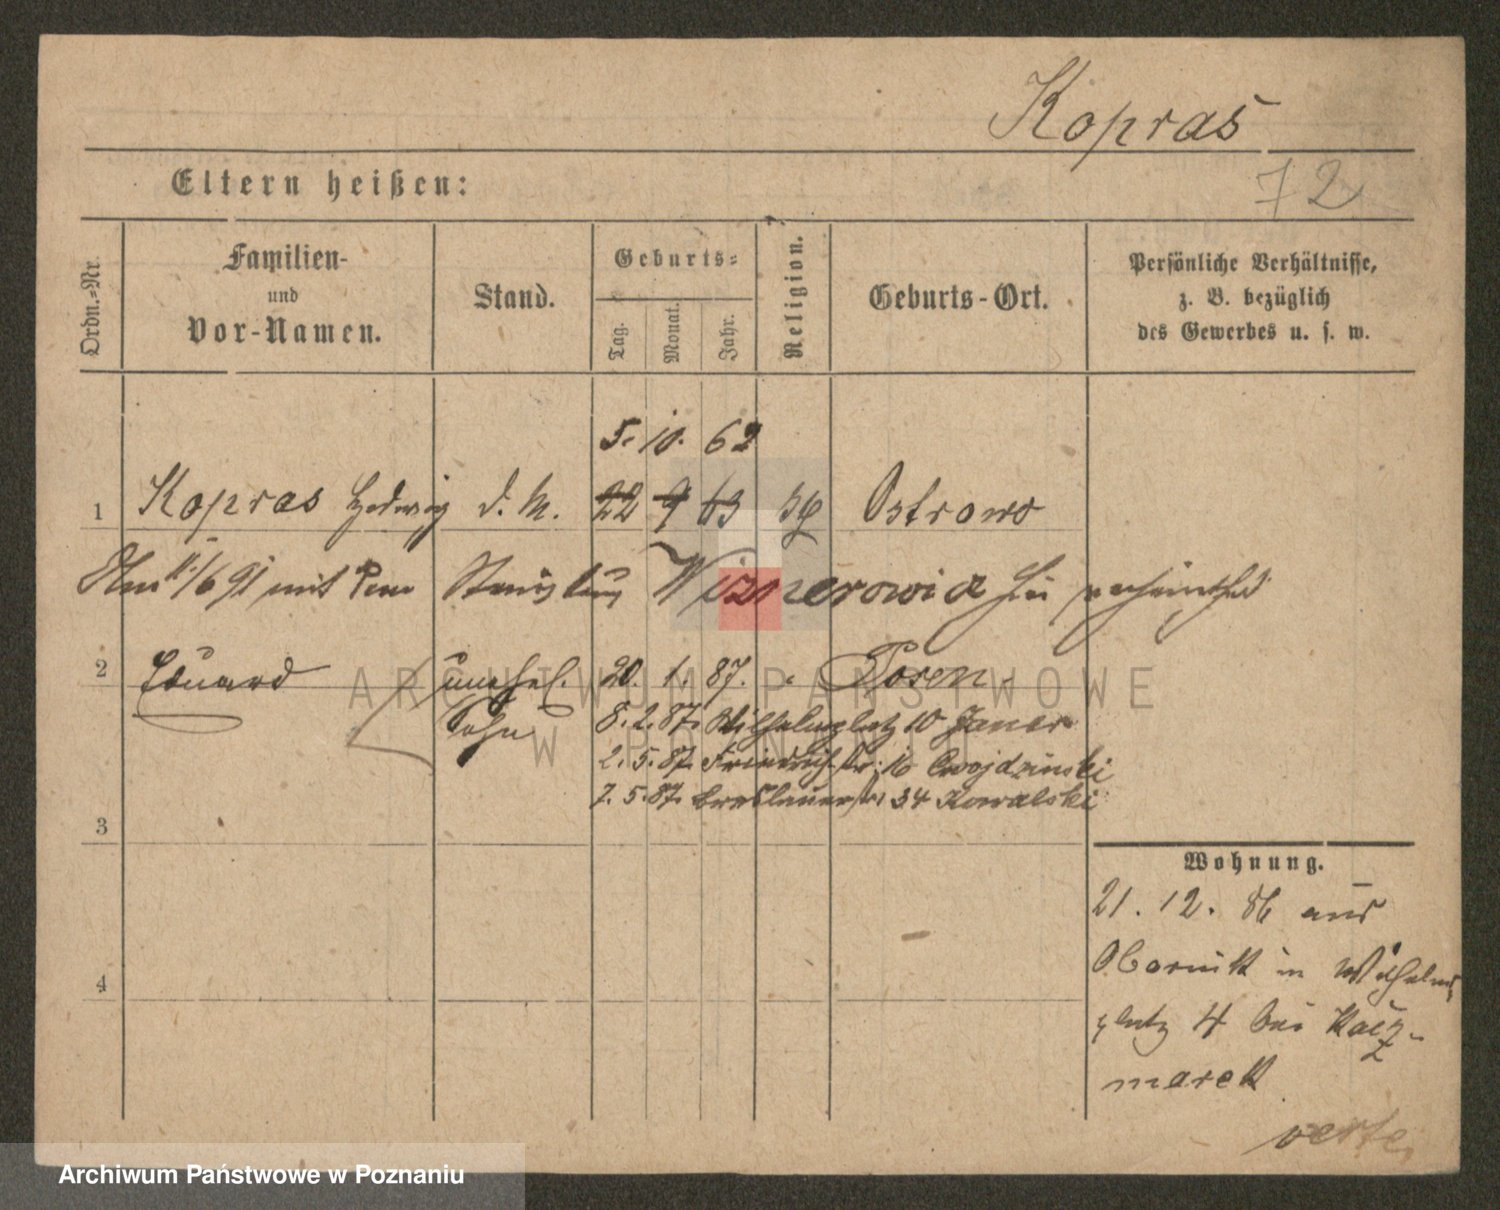 Kopras
72
Eltern heißen:
Ordn.=Nr.
Familien-
und
Vor-Namen.
Stand.
Geburts=
Tag.
Monat.
Jahr.
Religion.
Geburts-Ort.
Persönliche Verhältnisse,
z. B. bezüglich
des Gewerbes u. s. w.
5. 10. 62
1 Kopras Hedwig d. M. 22 9 63 Ostrowo
mit dem Stanislaus hier verheirathet
2 Eduard unehel. 20. 1. 87. Posen
Sohn 8. 2. 87. Wilhelmsplatz 10 Janer
2. 5. 87. Friedrichstr. 16 Cwojdzinski
7. 5. 87. Breslauerstr 34 Kowalski
3
Wohnung.
21. 12. 86 aus
Obornik in Wilhelms
platz 4 bei Kacz-
marek
4
verte
ARCHIWUM PAŃSTWOWE
W POZNANIU
Archiwum Państwowe w Poznaniu